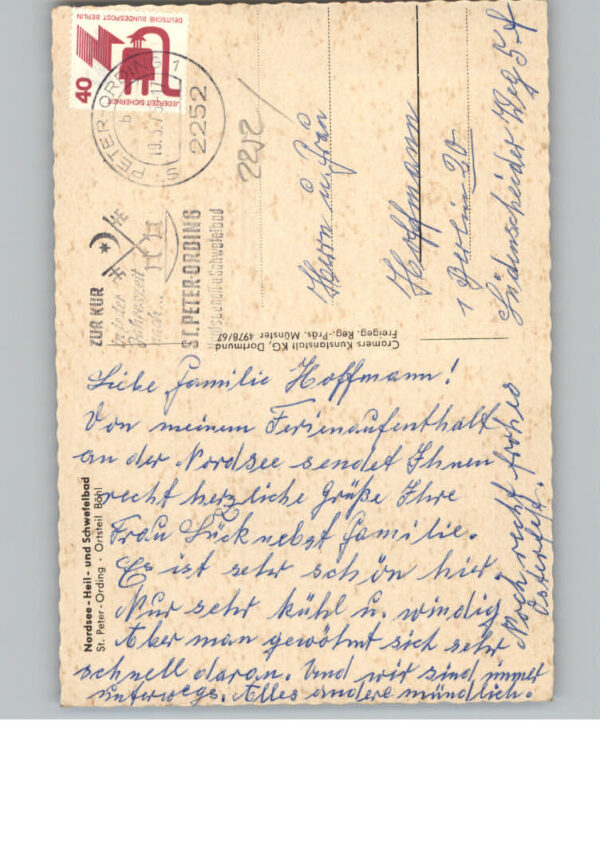 DEUTSCHE BUNDESPOST BERLIN
40
JEDERZEIT SICHERHEIT
ST. PETER-ORDING 1
b
2252
2252
ZUR KUR
in jeder
Jahreszeit
nach...
ST. PETER-ORDING
Nordseeheil- u. Schwefelbad
Herrn u. Frau
Hoffmann
1 Berlin 20
Lüdenscheider Weg 5-f
Cramers Kunstanstalt KG, Dortmund
Freigeg. Reg.-Präs. Münster 4978/67
Nordsee-Heil- und Schwefelbad
St. Peter-Ording · Ortsteil Böhl
Liebe Familie Hoffmann!
Von meinem Ferienaufenthalt
an der Nordsee sendet Ihnen
recht herzliche Grüße Ihre
Frau Lück nebst Familie.
Es ist sehr schön hier
Nur sehr kühl u. windig
Aber man gewöhnt sich sehr
schnell daran. Und wir sind immer
unterwegs. Alles andere mündlich.
Noch recht frohes
Osterfest.